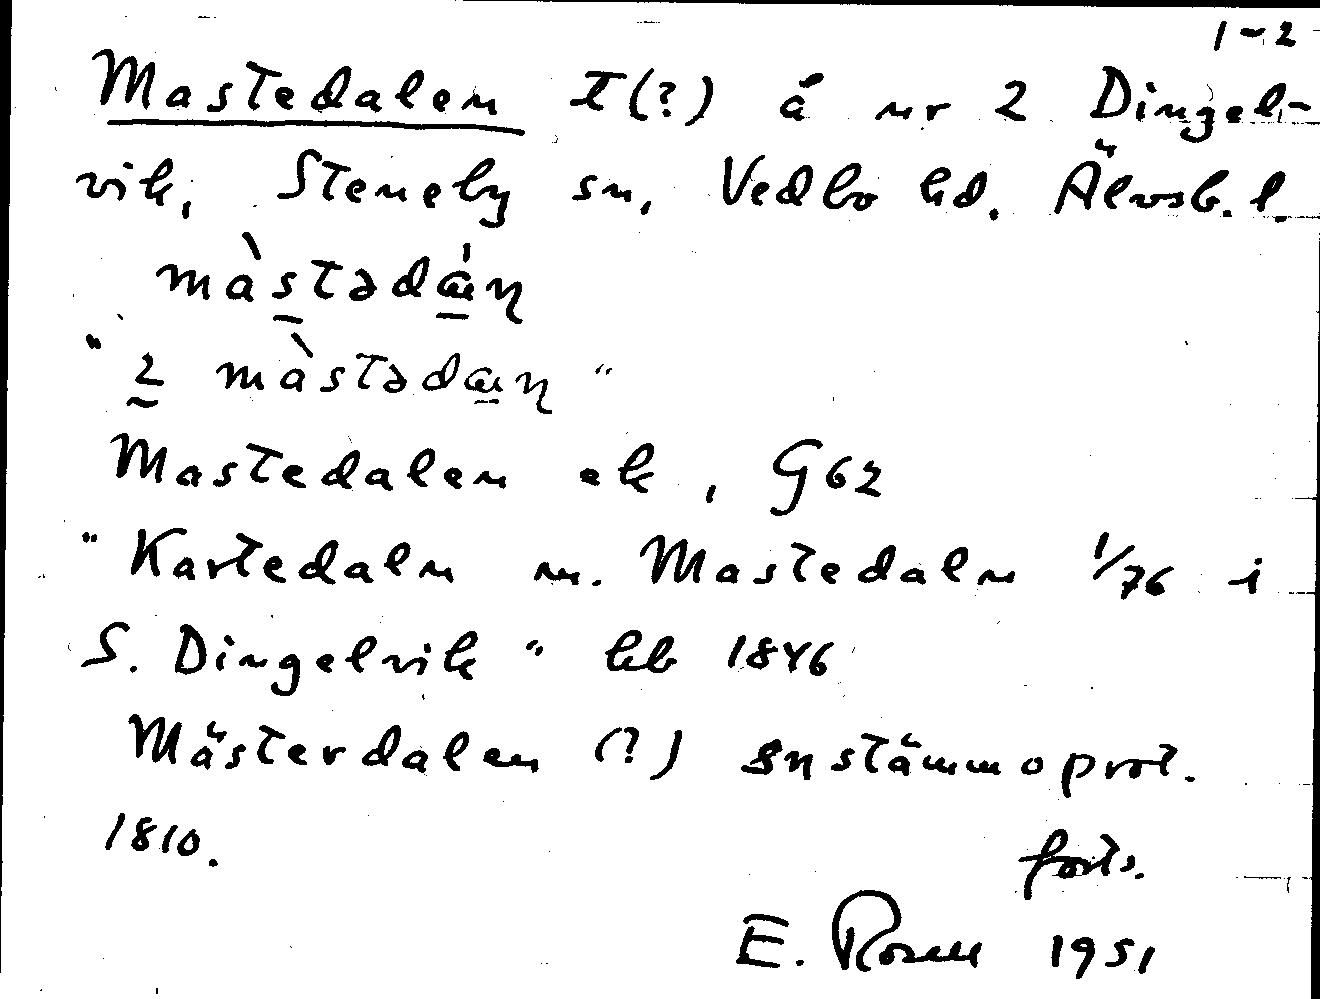 1-2
Mastedalen T(?) å nr 2 Dingel-
vik, Steneby sn, Vedbo hd. Älvsb. l.
màstədáɳ
" 2 màstədaɳ "
Mastedalen ek, G62
" Kartedaln m. Mastedaln 1/76 i
S. Dingelvik " kb 1846
Mästerdalen (?) snstämmoprot.
1810.
forts.
E. Rosell 1951